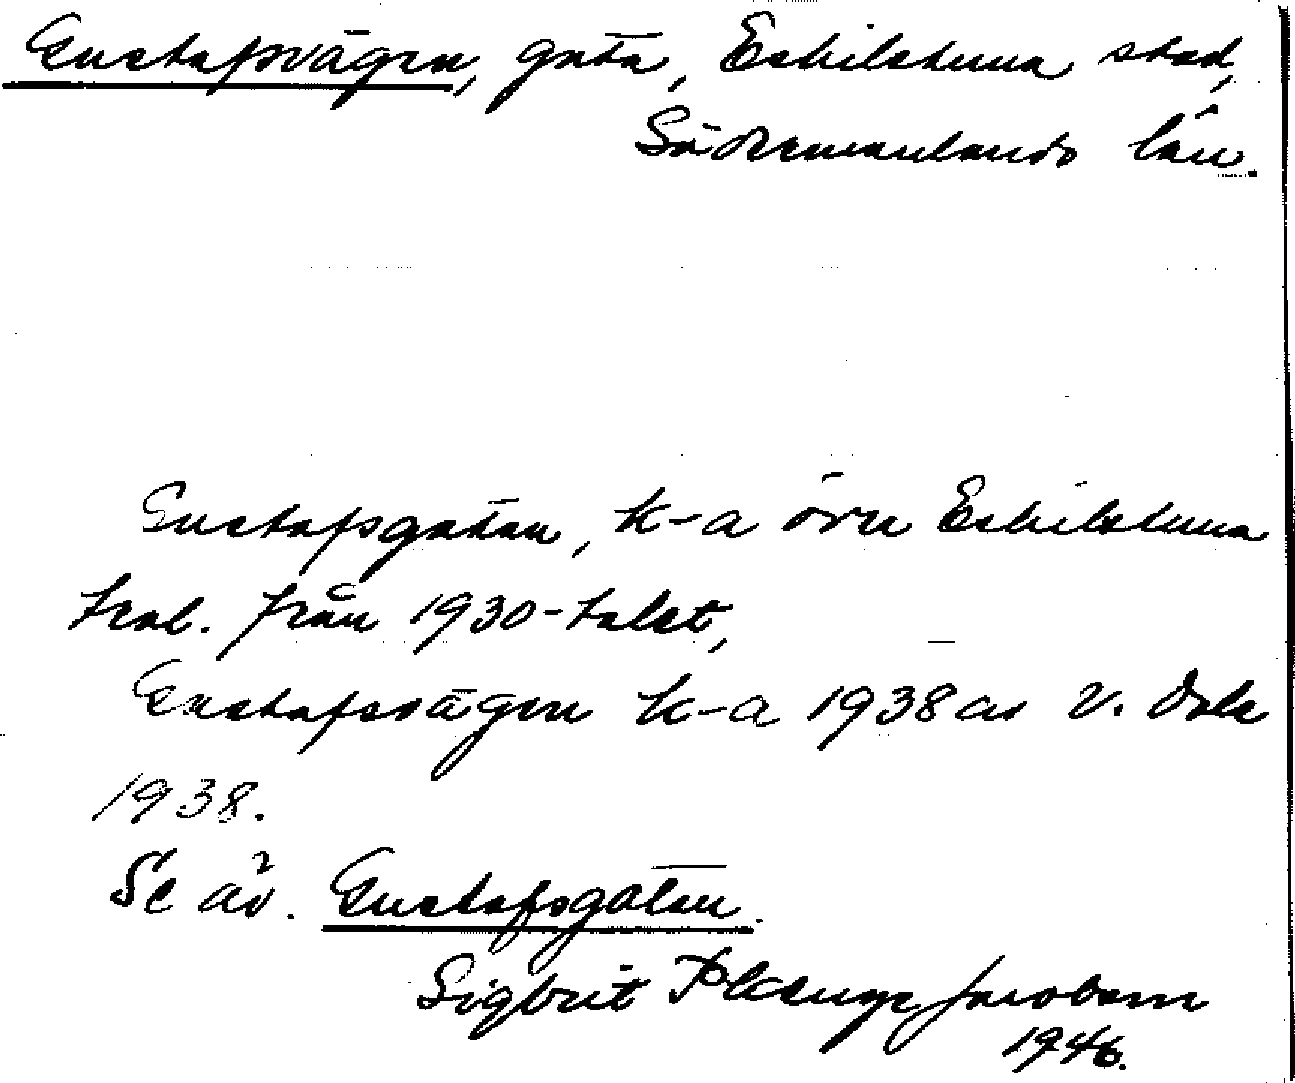 Gustafsvägen, gata, Eskilstuna stad,
Södermanlands län.
Gustafsgatan, k-a över Eskilstuna
trol. från 1930-talet,
Gustafsvägen k-a 1938 av V. Dale
1938.
Se äv. Gustafsgatan.
Sigbrit Plænge Jacobson
1946.